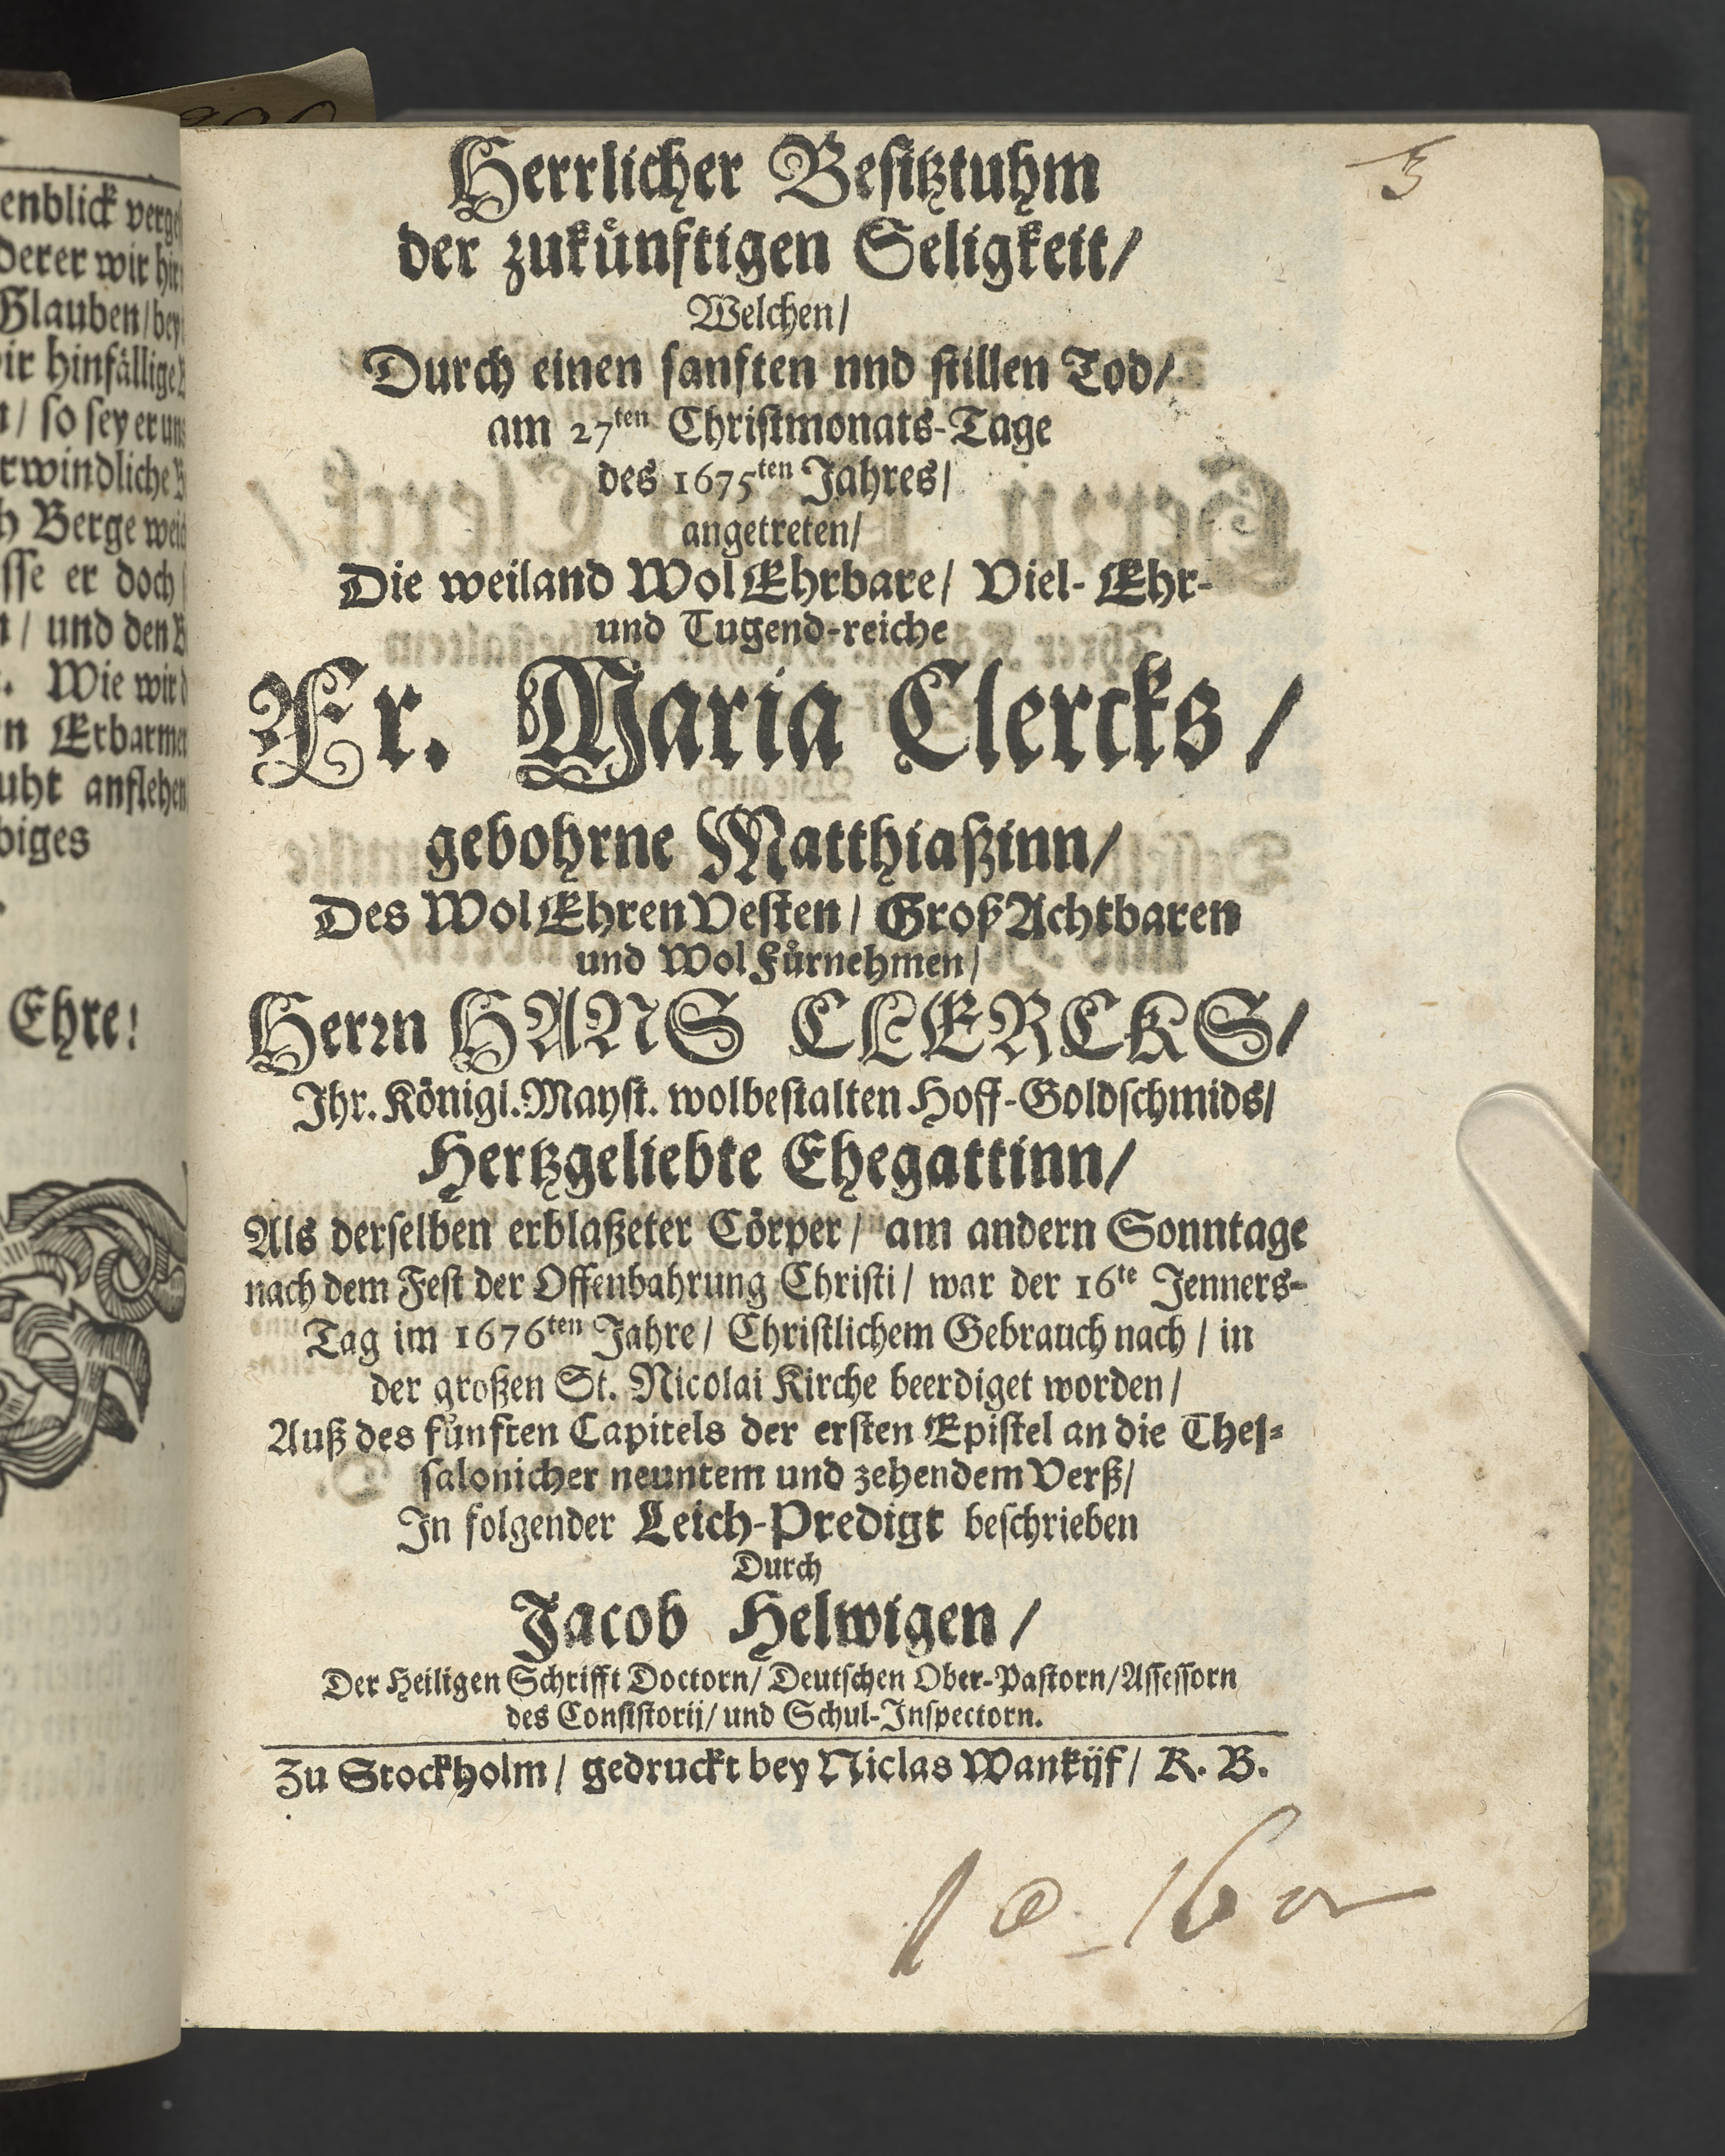 enblick verge
derer wir hir
Glauben/bey
ir hinfällige
/ so sey er uns
rwindliche
h Berge weid
sse er doch
/ und den
. Wie wird
n Erbarmen
uht anflehen
biges
Ehre!
3
Herrlicher Besitztuhm
der zukůnftigen Seligkeit/
Welchen/
Durch einen sanften nnd stillen Tod/
am 27ten Christmonats-Tage
des 1675ten Jahres/
angetreten/
Die weiland WolEhrbare/ Viel-Ehr-
und Tugend-reiche
Fr. Maria Clercks/
gebohrne Matthiaßinn/
Des WolEhrenVesten/ GroßAchtbaren
und WolFůrnehmen/
Herrn HANS CLERCKS/
Ihr. Königl. Mayst. wolbestalten Hoff-Goldschmids/
Hertzgeliebte Ehegattinn/
Als derselben erblaßeter Cörper/ am andern Sonntage
nach dem Fest der Offenbahrung Christi/ war der 16te Jenners-
Tag im 1676ten Jahre/ Christlichem Gebrauch nach/ in
der großen St. Nicolai Kirche beerdiget worden/
Auß des fůnften Capitels der ersten Epistel an die Thes-
salonicher neuntem und zehendem Verß/
In folgender Leich-Predigt beschrieben
Durch
Jacob Helwigen/
Der Heiligen Schrifft Doctorn/ Deutschen Ober-Pastorn/Assessorn
des Consistorij/ und Schul-Inspectorn.
Zu Stockholm/ gedruckt bey Niclas Wankijf/ K. B.